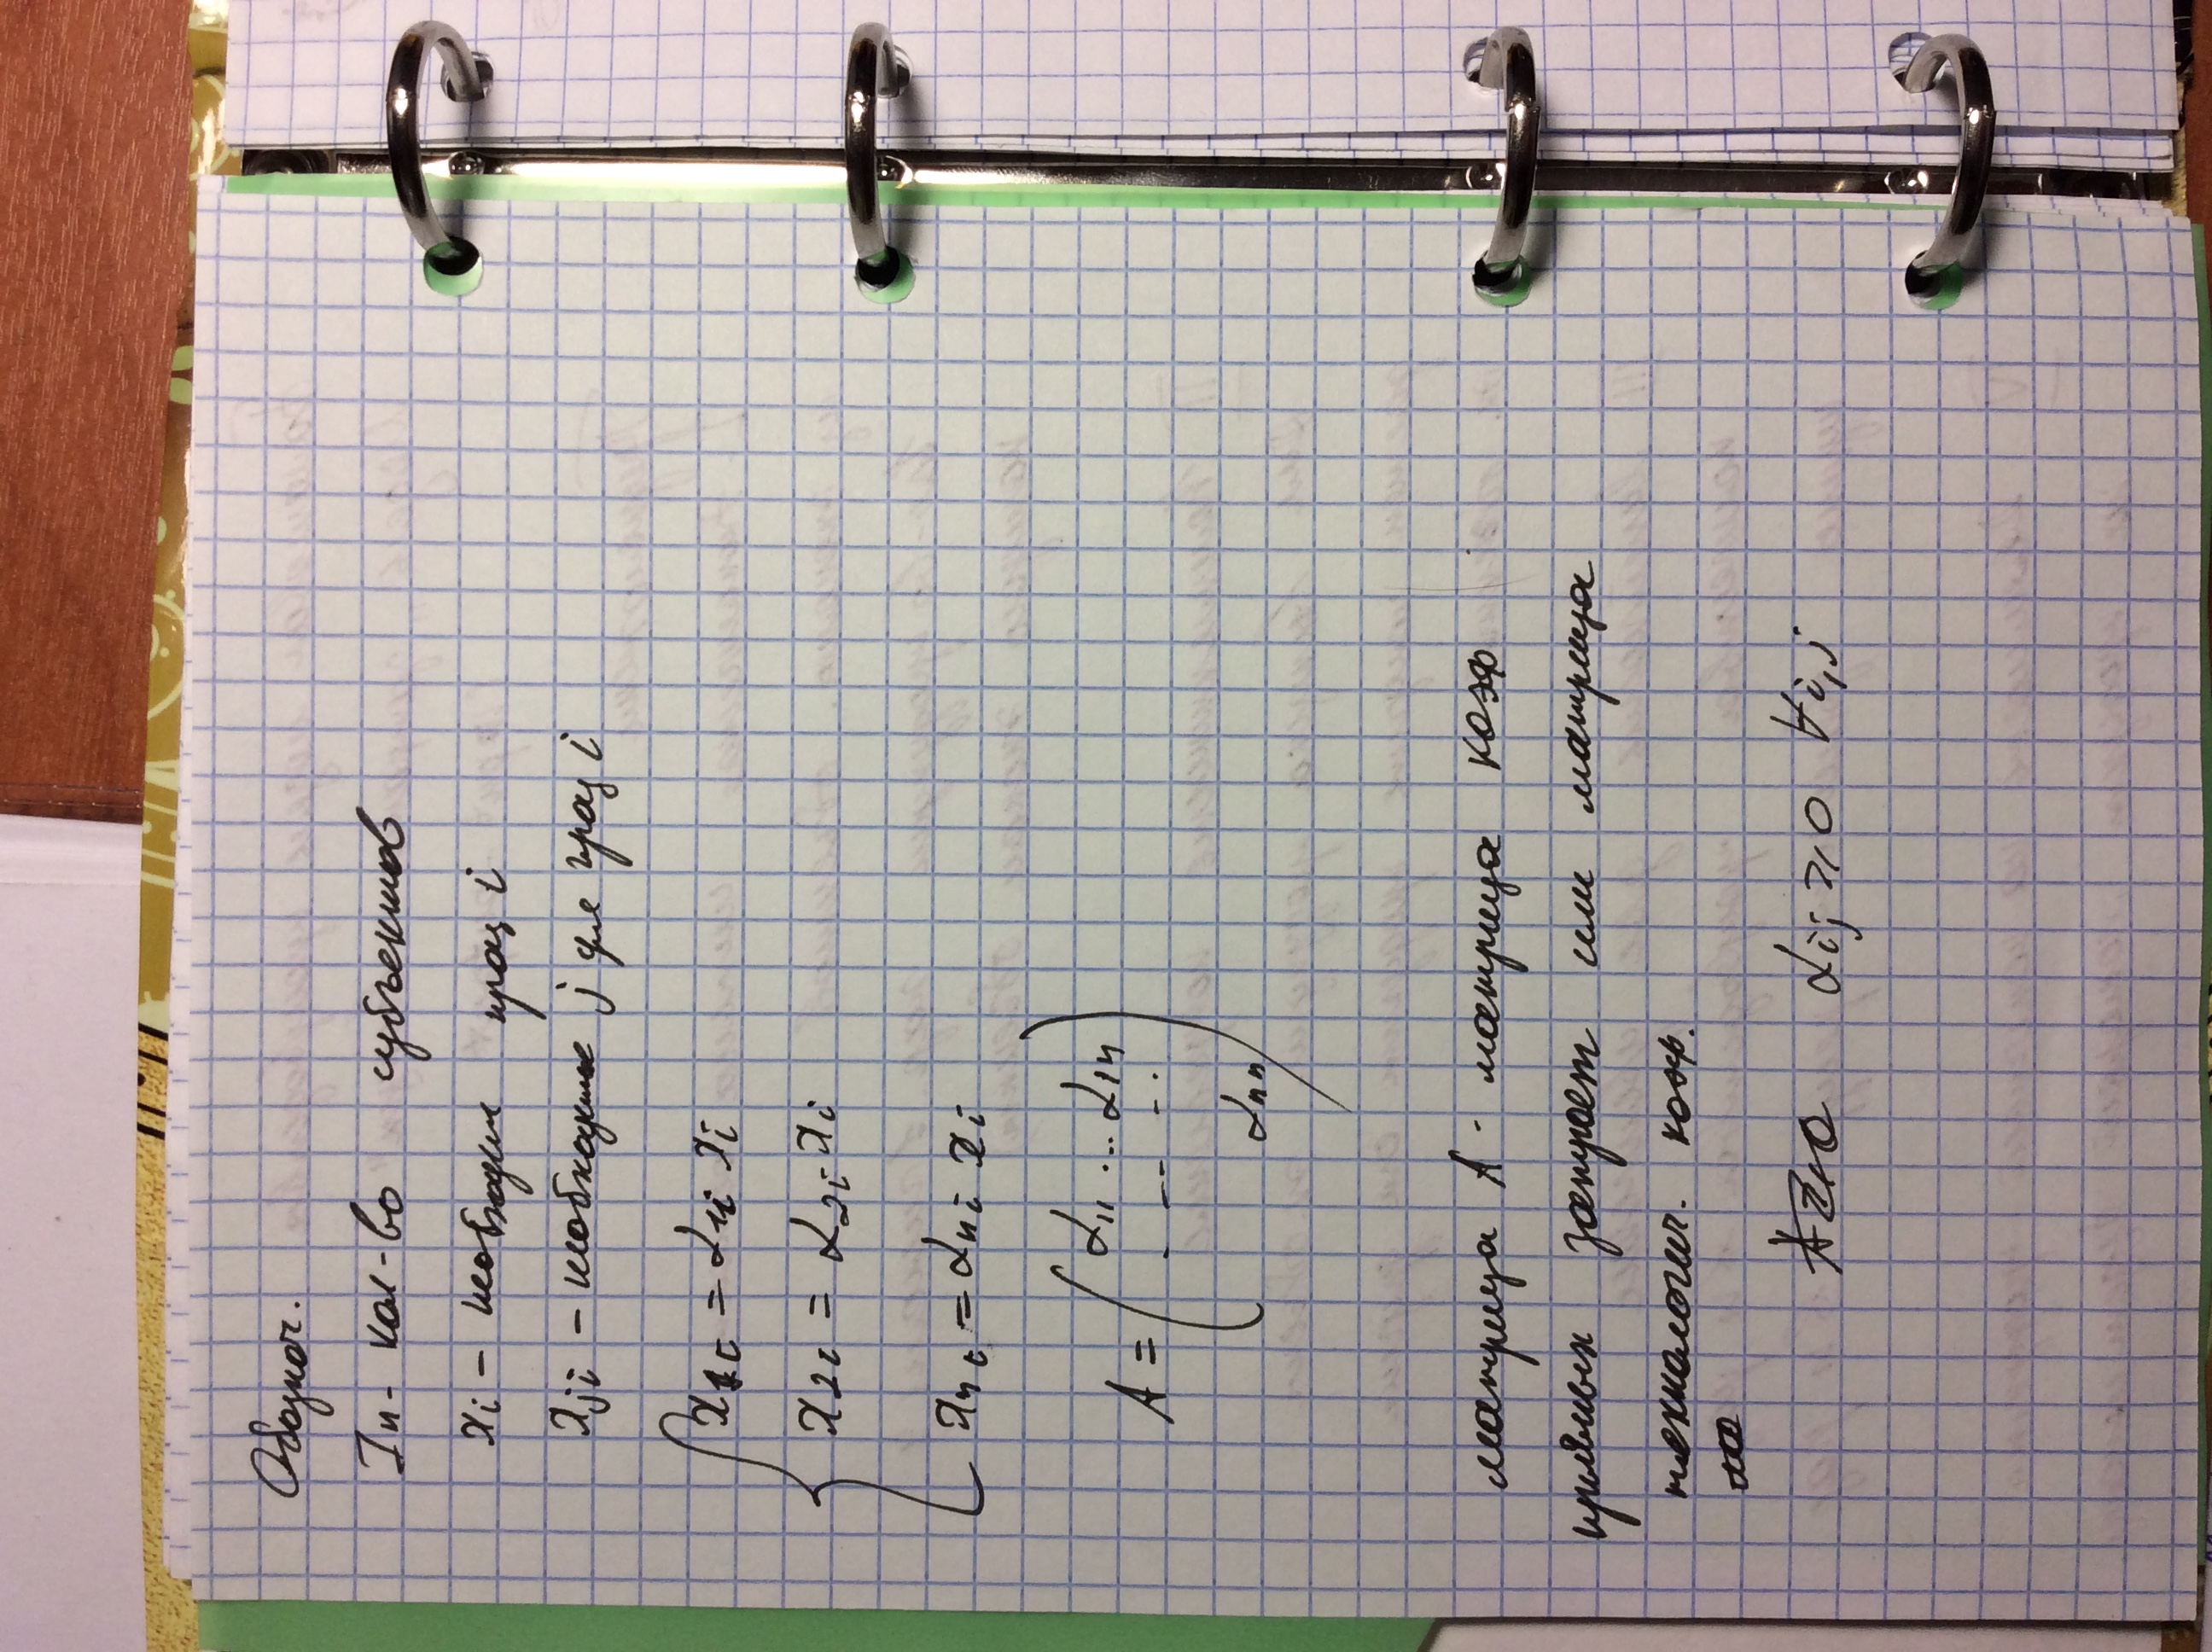 Обознач.
In - кол-во субъектов
xi - необходим прод i
xji - необходимое j для прод i
x1i = α1i xi
x2i = α2i xi
xni = αni xi
A = ( α11 ... α1n
. -- -·
αnn )
матрица A - матрица коэф
прямых затрат или матрица
технологич. коэф.
αij ⩾ 0 ∀i,j